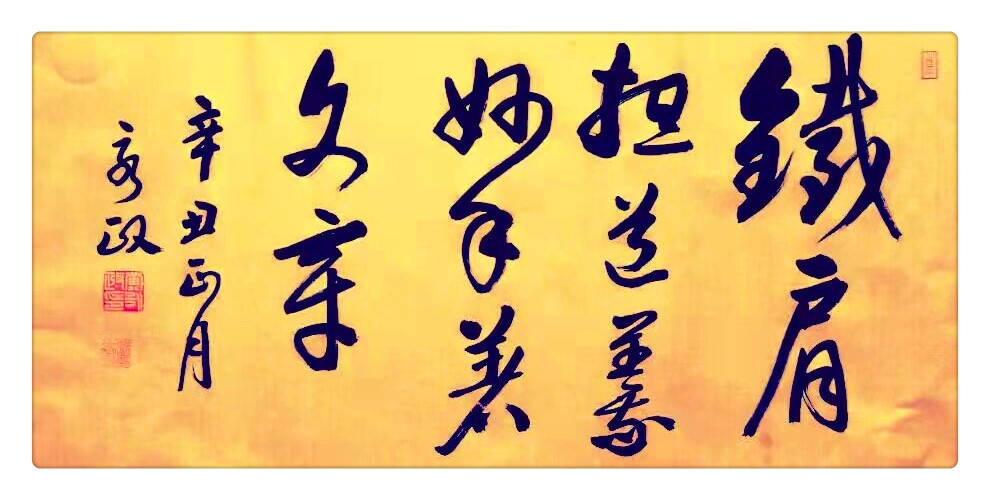 鐵肩
担道義
妙手著
文章
辛丑正月
政